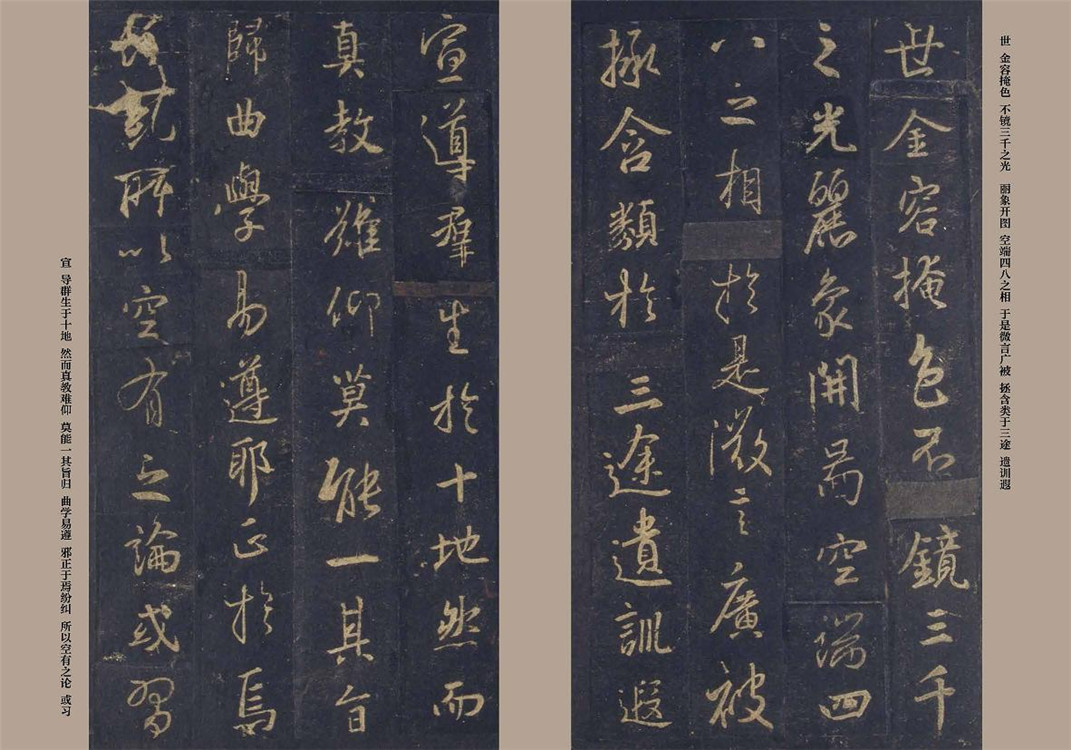 世 金容掩色 不镜三千之光 丽象开图 空端四八之相 于是微言广被 拯含类于三途 遗训遐
世金容掩色不鏡三千
之光麗象開圖空端四
八之相於是微言廣被
拯含類於三途遺訓遐
宣導羣生於十地然而
真教難仰莫能一其旨
歸曲學易遵耶正於焉
紛糺所以空有之論或習
宣 导群生于十地 然而真教难仰 莫能一其旨归 曲学易遵 邪正于焉纷纠 所以空有之论 或习